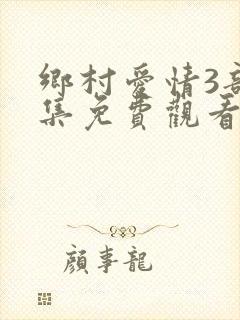 鄉村愛情3
集免費觀看
顏事龍